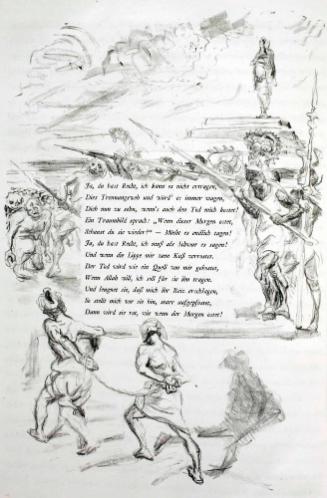 Ja, du hast Recht, ich kann es nicht ertragen,
Dies Traumgeweb und würd' es immer wagen,
Dich nun zu sehn, wenn's auch den Tod mich kostet!
Ein Traumbild sprach: „Wenn dieser Morgen ostet,
Schaust du sie wieder!" — Möcht es endlich tagen!
Ja, du hast Recht, ich muß die Schwüre es sagen!
Und wenn die Lippe mir vom Kuß verrostet,
Der Tod wird wie ein Quell von mir gekostet,
Wenn Allah will, ich soll für sie ihn tragen.
Und leugnet sie, daß mich ihr Reiz erschlagen,
So stellt mich vor sie hin, starr aufgepfostet,
Dann wird sie rot, wie wenn der Morgen ostet!